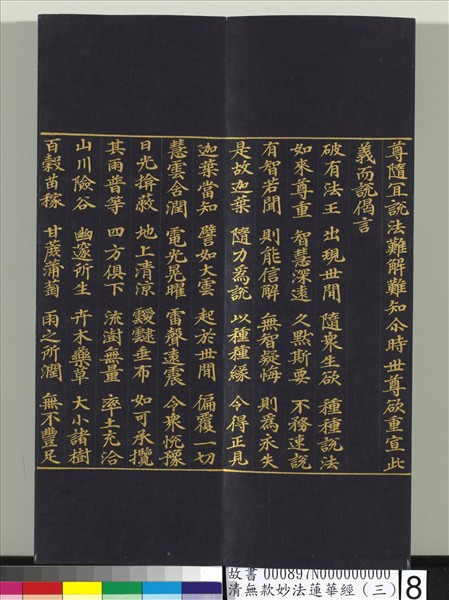 尊隨宜說法難解難知尒時世尊欲重宣此
義而說偈言
破有法王　出現世間　隨眾生欲　種種說法
如來尊重　智慧深遠　久默斯要　不務速說
有智若聞　則能信解　無智疑悔　則為永失
是故迦葉　隨力為說　以種種緣　令得正見
迦葉當知　譬如大雲　起於世間　徧覆一切
慧雲含潤　電光晃曜　雷聲遠震　令眾悅豫
日光揜蔽　地上清涼　靉靆垂布　如可承攬
其雨普等　四方俱下　流澍無量　率土充洽
山川險谷　幽邃所生　卉木藥草　大小諸樹
百穀苗稼　甘蔗蒲萄　雨之所潤　無不豐足
故書 000897N000000000
清無款妙法蓮華經（三）
8